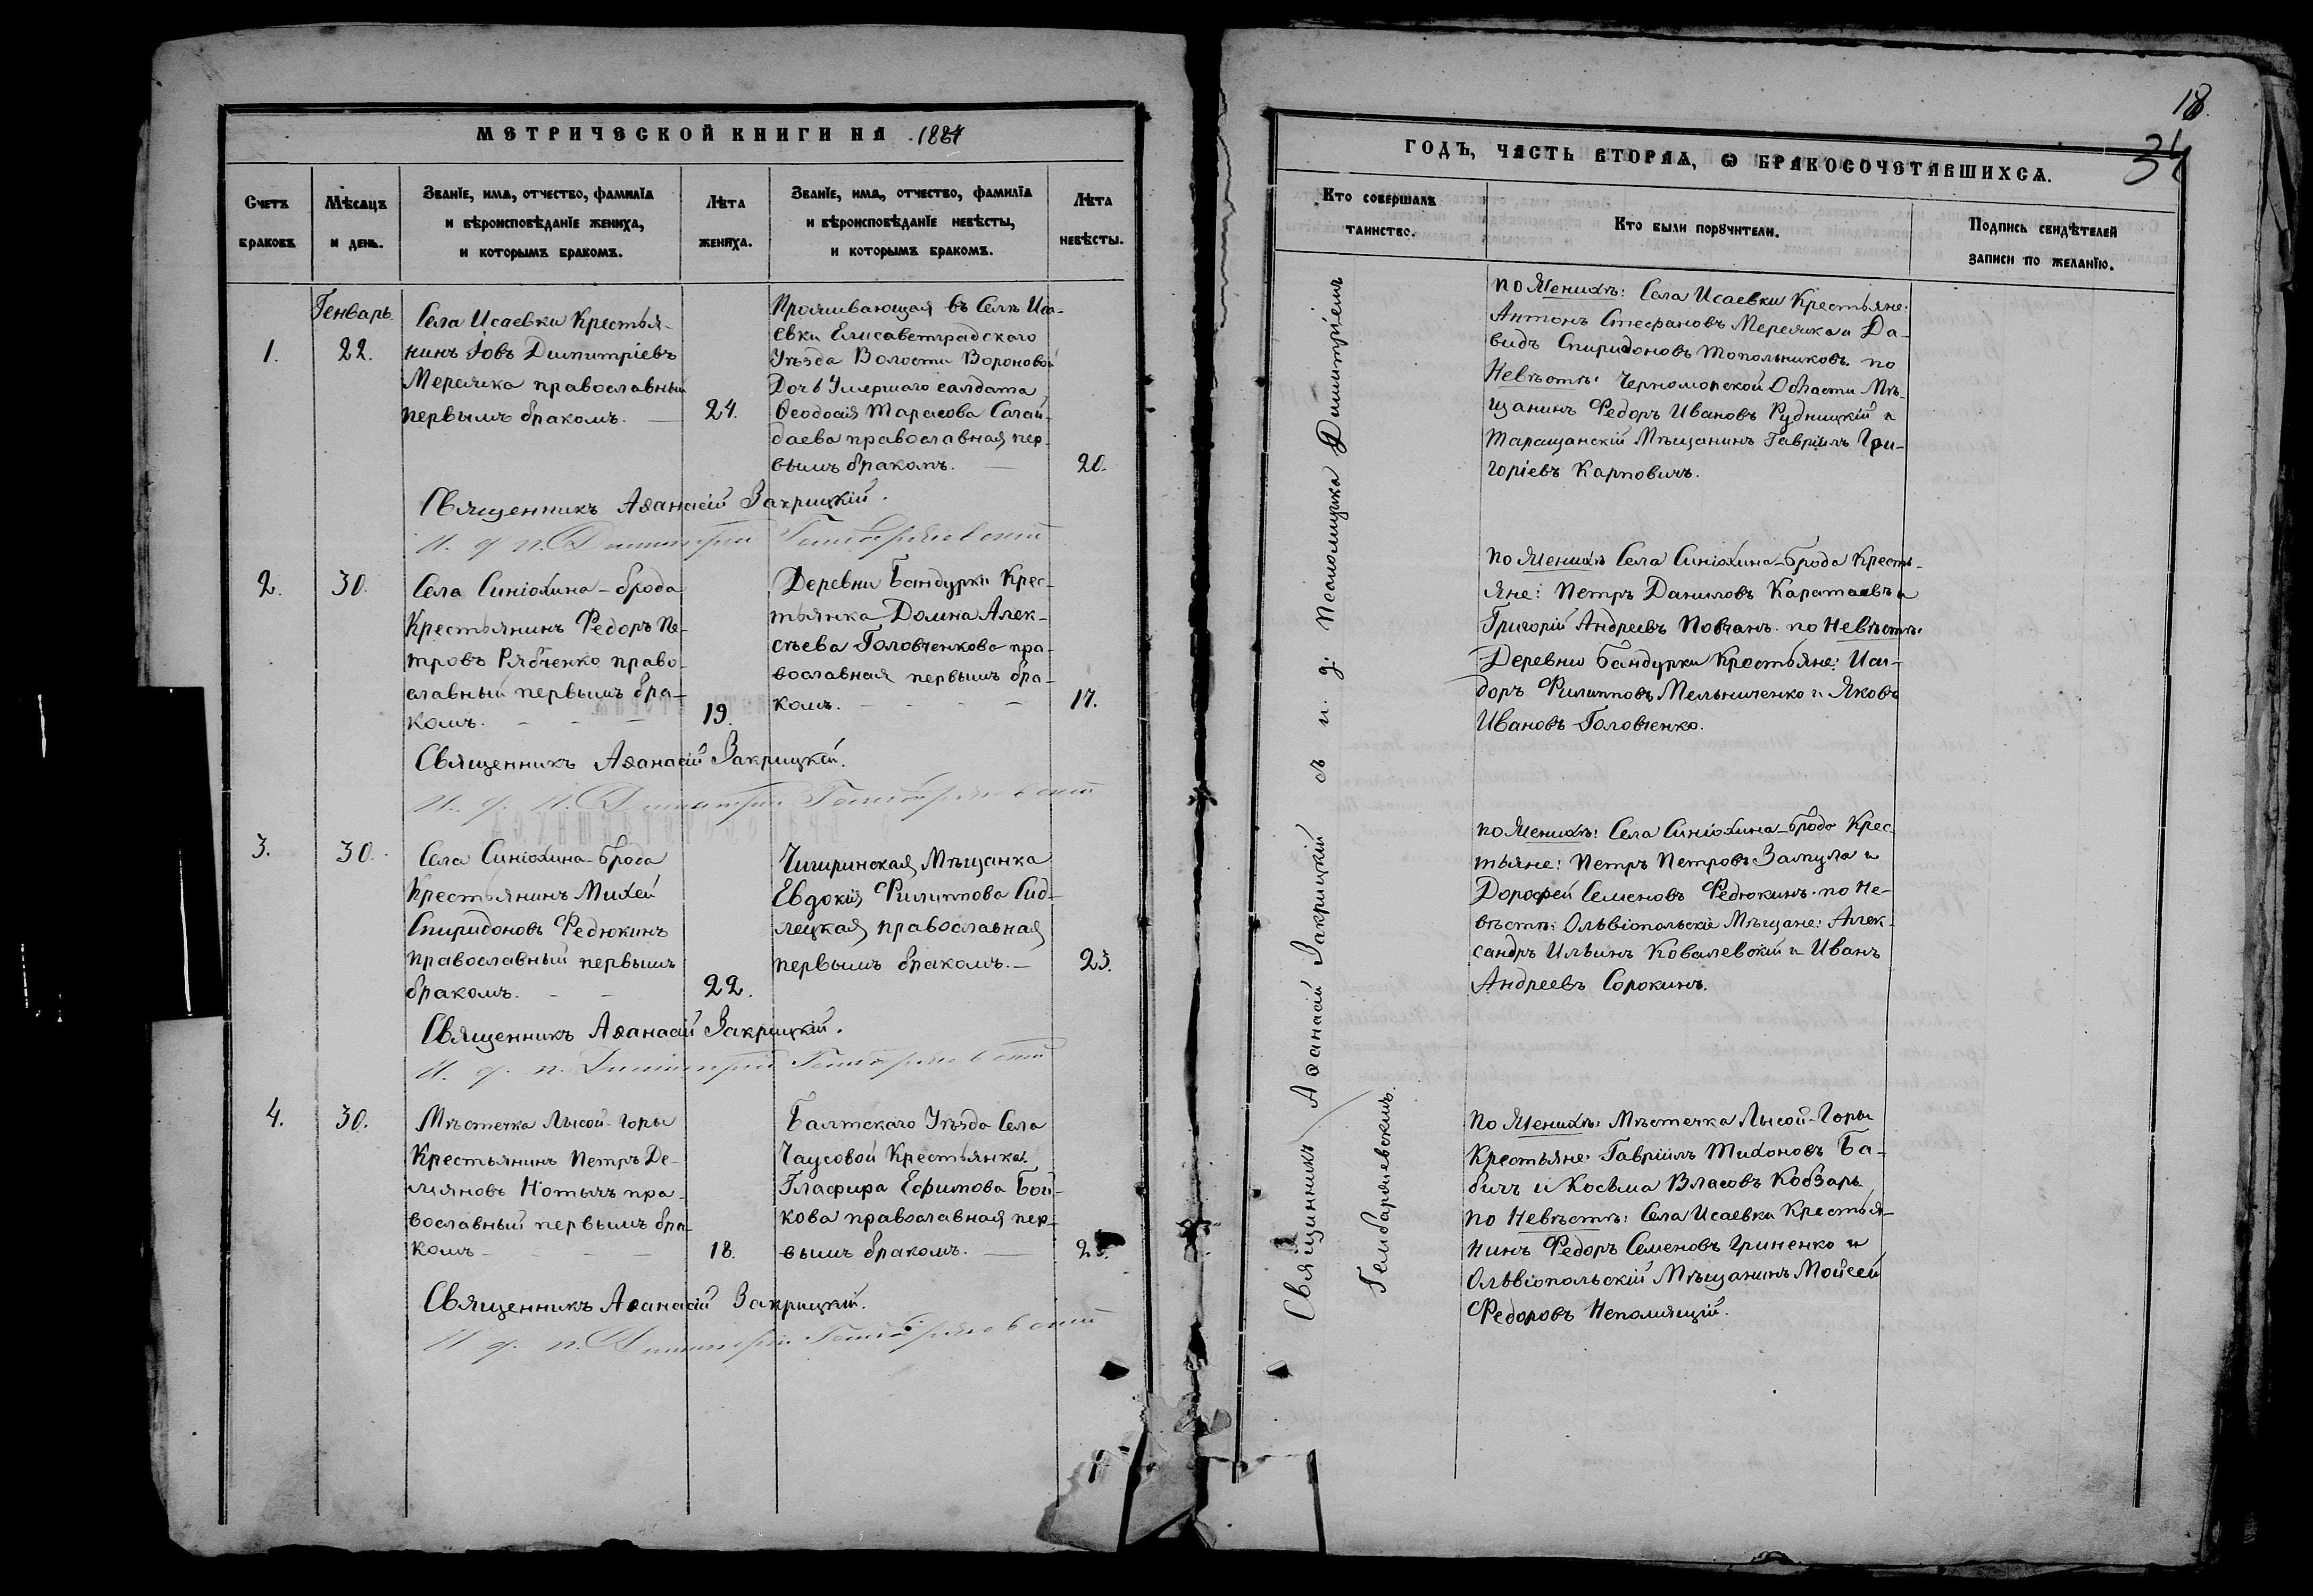 МЕТРИЧЕСКОЙ КНИГИ НА 1884
Счетъ браковъ.
Мѣсяцъ и день.
Званіе, имя, отчество, фамилія и вѣроисповѣданіе жениха, и которымъ бракомъ.
Лѣта жениха.
Званіе, имя, отчество, фамилія и вѣроисповѣданіе невѣсты, и которымъ бракомъ.
Лѣта невѣсты.
Генварь
1.
22.
Села Исаевки Крестья-
нинъ Іовъ Димитріевъ
Мережка православный
первымъ бракомъ. —
24.
Проживающая въ Селѣ Иса-
евки Елисаветградскаго
Уѣзда Волости Вороновой
Дочь Умершаго салдата
Ѳеодосія Тарасова Сагай-
даева православная пер-
вымъ бракомъ. —
20.
Священникъ Аѳанасій Закрицкій.
И. д. п. Димитрій Гембаржевскій
2.
30.
Села Синюхина-брода
Крестьянинъ Федоръ Пе-
тровъ Рябченко право-
славный первымъ бра-
комъ. - - -
19.
Деревни Бандурки Крес-
тьянка Домна Алек-
сѣева Головченкова пра-
вославная первымъ бра-
комъ. - - - -
17.
Священникъ Аѳанасій Закрицкій.
И. д. п. Димитрій Гембаржевскій
3.
30.
Села Синюхина-брода
Крестьянинъ Михей
Спиридоновъ Федюкинъ
православный первымъ
бракомъ. - -
22.
Чигиринская Мѣщанка
Евдокія Филиппова Сид-
лецкая православная
первымъ бракомъ. —
23.
Священникъ Аѳанасій Закрицкій.
И. д. п. Димитрій Гембаржевскій
4.
30.
Мѣстечка Лысой-Горы
Крестьянинъ Петръ Де-
мяновъ Нотычъ пра-
вославный первымъ бра-
комъ - - -
18.
Балтскаго Уѣзда Села
Чаусовой Крестьянка
Глафира Ефимова Бой-
кова православная пер-
вымъ бракомъ. —
Священникъ Аѳанасій Закрицкій.
И. д. п. Димитрій Гембаржевскій
18
34
ГОДЪ, ЧАСТЬ ВТОРАЯ, Ѡ БРАКОСОЧЕТАВШИХСЯ.
Кто совершалъ таинство.
Кто были поручители.
Подпись свидѣтелей записи по желанію.
Священникъ Аѳанасій Закрицкій съ и. д. Псаломщика Димитріемъ
Гембаржевскимъ.
по Женихѣ: Села Исаевки Крестьяне:
Антонъ Стефановъ Мережка и Да-
видъ Спиридоновъ Топольниковъ. по
Невѣстѣ: Черноморской Области Мѣ-
щанинъ Федоръ Ивановъ Рудницкій и
Таращанскій Мѣщанинъ Гавріилъ Гри-
горіевъ Карповичъ.
по Женихѣ Села Синюхина-Брода Кресть-
яне: Петръ Даниловъ Каратаевъ и
Григорій Андреевъ Повчанъ. по Невѣстѣ:
Деревни Бандурки Крестьяне: Иси-
доръ Филипповъ Мельниченко и Яковъ
Ивановъ Головченко.
по Женихѣ: Села Синюхина-брода Крес-
тьяне: Петръ Петровъ Замула и
Дорофей Семеновъ Федюкинъ. по Не-
вѣстѣ: Ольвіопольскіе Мѣщане: Алек-
сандръ Ильинъ Ковалевскій и Иванъ
Андреевъ Сорокинъ.
по Женихѣ: Мѣстечка Лысой-Горы
Крестьяне: Гавріилъ Тихоновъ Ба-
бичъ и Косьма Власовъ Кобзарь
по Невѣстѣ: Села Исаевки Крестья-
нинъ Федоръ Семеновъ Гриненко и
Ольвіопольскій Мѣщанинъ Мойсей
Федоровъ Непомящій.